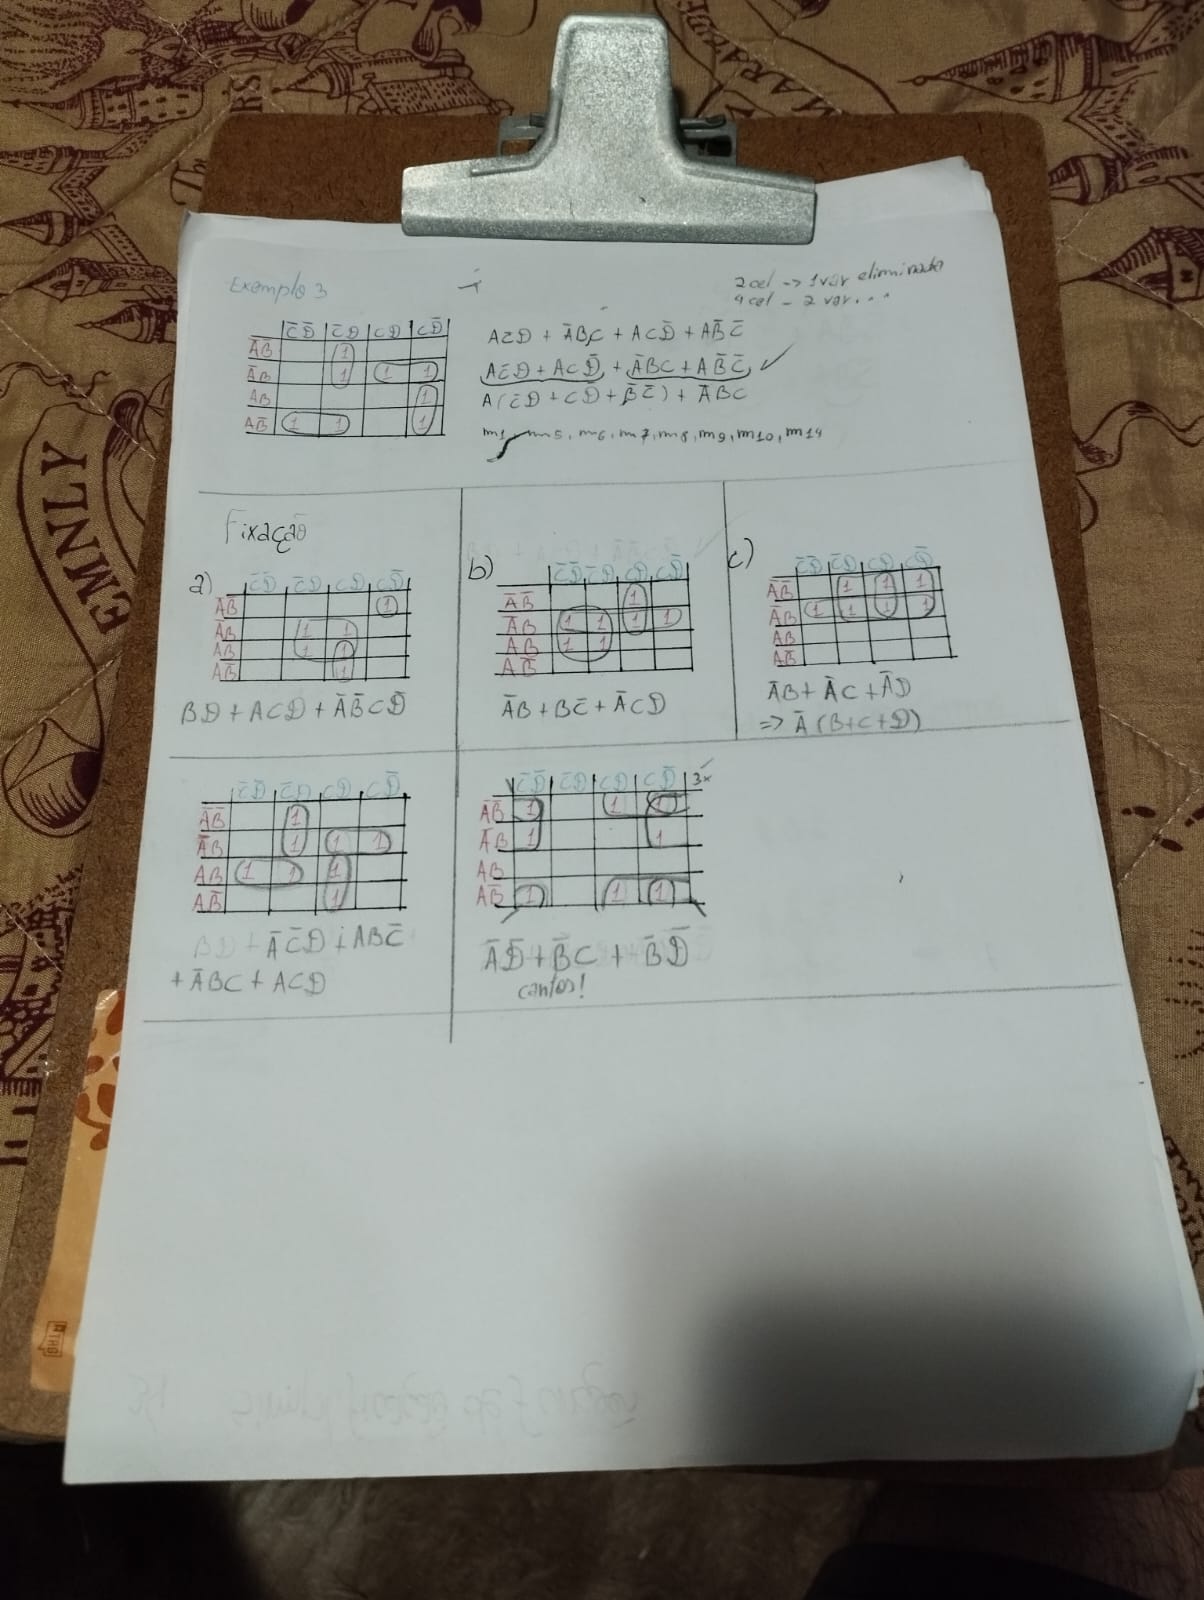 Exemplo 3
2 cel -> 1 var eliminada
4 cel - 2 var. . .
C̄D̄ C̄D CD CD̄
ĀB̄ 1
ĀB 1 1 1
AB 1
AB̄ 1 1 1
AC̄D + ĀBC + ACD̄ + AB̄C̄
AC̄D + ACD̄ + ĀBC + AB̄C̄ ✓
A(C̄D + CD̄ + B̄C̄) + ĀBC
m1, m5, m6, m7, m8, m9, m10, m14
Fixação
a)
C̄D̄ C̄D CD CD̄
ĀB̄ 1
ĀB 1 1
AB 1 1
AB̄ 1
BD + ACD + ĀB̄CD̄
b)
C̄D̄ C̄D CD CD̄
ĀB̄ 1
ĀB 1 1 1 1
AB 1 1
AB̄
ĀB + BC̄ + ĀCD
c)
C̄D̄ C̄D CD CD̄
ĀB̄ 1 1 1
ĀB 1 1 1 1
AB
AB̄
ĀB + ĀC + ĀD
=> Ā(B+C+D)
C̄D̄ C̄D CD CD̄
ĀB̄ 1
ĀB 1 1 1
AB 1 1 1
AB̄ 1
ĀC̄D + ABC̄
+ ĀBC + ACD
C̄D̄ C̄D CD CD̄ 3x
ĀB̄ 1 1 1
ĀB 1 1
AB
AB̄ 1 1 1
ĀD̄ + B̄C + B̄D̄
cantos!
EMNLY